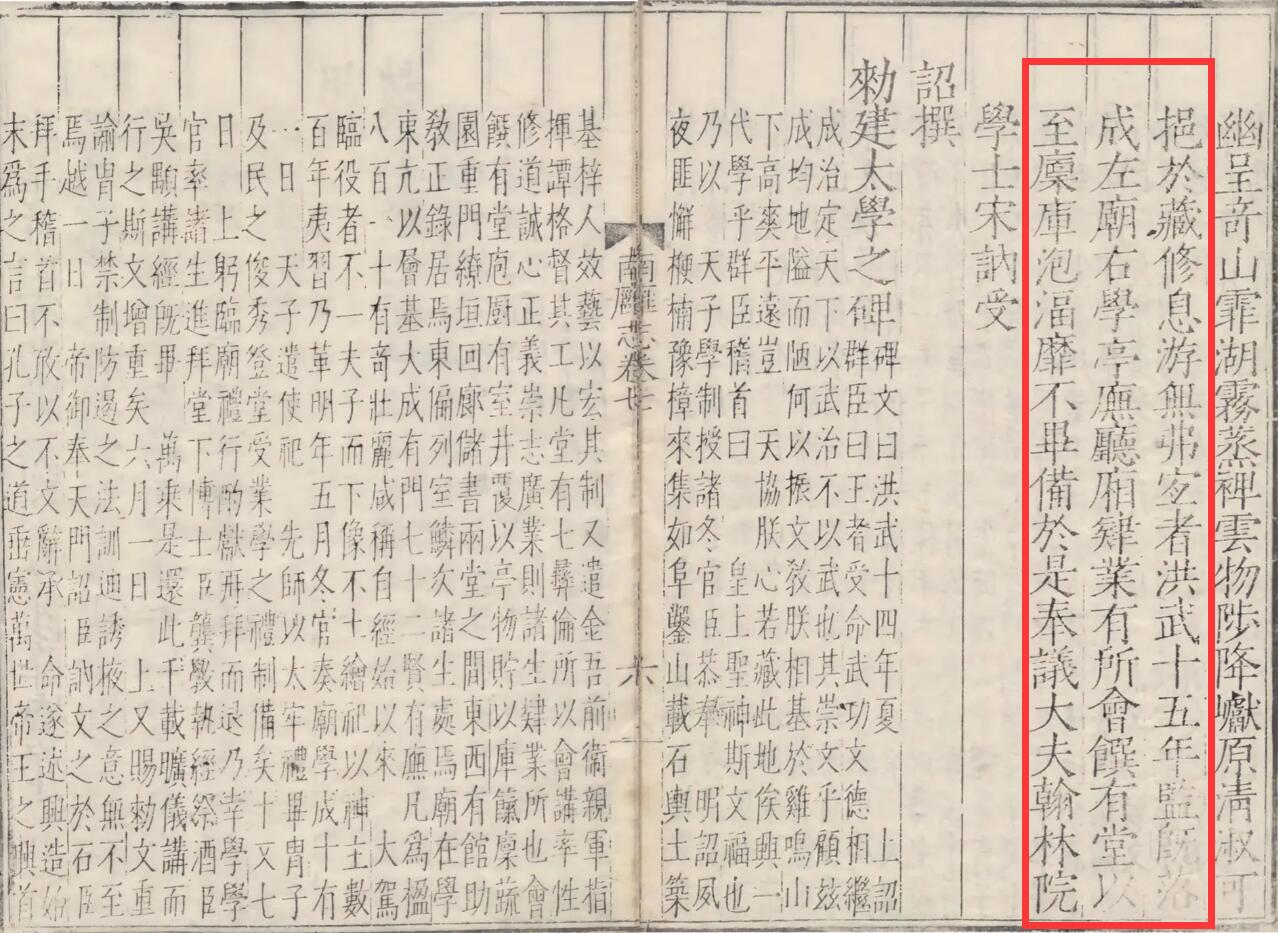 幽呈竒山霏湖霧蒸禆雲物陟降巘原清淑可
挹於藏修息游無弗㝎者洪武十五年監旣落
成左廟右學亭廡廳廂肄業有所會饌有堂以
至廩庫泡湢靡不畢備於是奉議大夫翰林院
學士宋訥受
詔撰
勑建太學之碑 碑文曰洪武十四年夏 上詔
群臣曰王者受命武功文德相繼
成治定天下以武治不以武也其崇文乎顧兹
成均地隘而陋何以振文敎朕相基於雞鳴山
下高爽平遠豈 天協朕心若藏此地俟興一
代學乎群臣稽首曰 皇上聖神斯文福也
乃以 天子學制授諸冬官臣恭奉 明詔夙
夜匪懈楩楠豫樟來集如阜鑿山載石輿土築
南廱志卷七 六
基梓人效藝以宏其制又遣金吾前衛親軍指
揮譚格督其工凡堂有七彝倫所以會講率性
修道誠心正義崇志廣業則諸生肄業所也會
饌有堂庖厨有室井覆以亭物貯以庫籯廩蔬
園重門繚垣回廊儲書兩堂之間東西有館助
敎正錄居焉東偏列室鱗次諸生處焉廟在學
東亢以層基大成有門七十二賢有廡凡爲楹
八百一十有竒壯麗咸稱自經始以來 大駕
臨役者不一夫子而下像不土繪祀以神主數
百年夷習乃革明年五月冬官奏廟學成十有
一日 天子遣使祀 先師以太牢禮畢胄子
及民之俊秀登堂受業學之禮制備矣十又七
日 上躬臨廟禮行酌獻再拜而退乃幸學學
官率諸生進拜堂下博士臣龔斆執經祭酒臣
吳顒講經旣畢 萬乘是還此千載曠儀講而
行之斯文增重矣六月一日 上又賜勑文重
諭胄子禁制防遏之法訓迪誘掖之意無不至
焉越一日 帝御奉天門詔臣訥文之於石臣
拜手稽首不敢以不文辭承 命遂述興造始
末爲之言曰孔子之道垂憲萬世帝王之興首